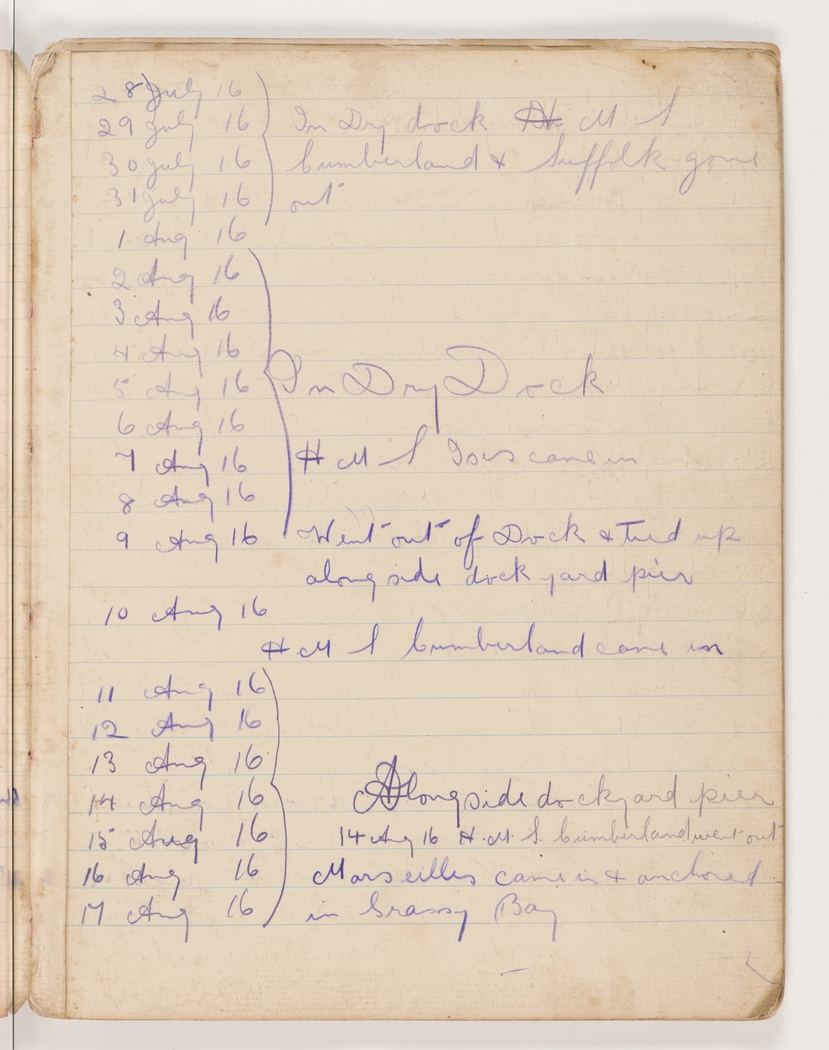 28 July 16
29 July 16 In Dry dock H M S
30 July 16 Cumberland & Suffolk gone
31 July 16 out
1 Aug 16
2 Aug 16
3 Aug 16
4 Aug 16
5 Aug 16 In Dry Dock
6 Aug 16
7 Aug 16 H M S Isis came in
8 Aug 16
9 Aug 16 Went out of Dock & tied up
alongside dock yard pier
10 Aug 16
H M S Cumberland came in
11 Aug 16
12 Aug 16
13 Aug 16
14 Aug 16 Alongside dockyard pier
15 Aug 16 14 Aug 16 H.M.S. Cumberland went out
16 Aug 16 Marseilles came in & anchored
17 Aug 16 in Grassy Bay